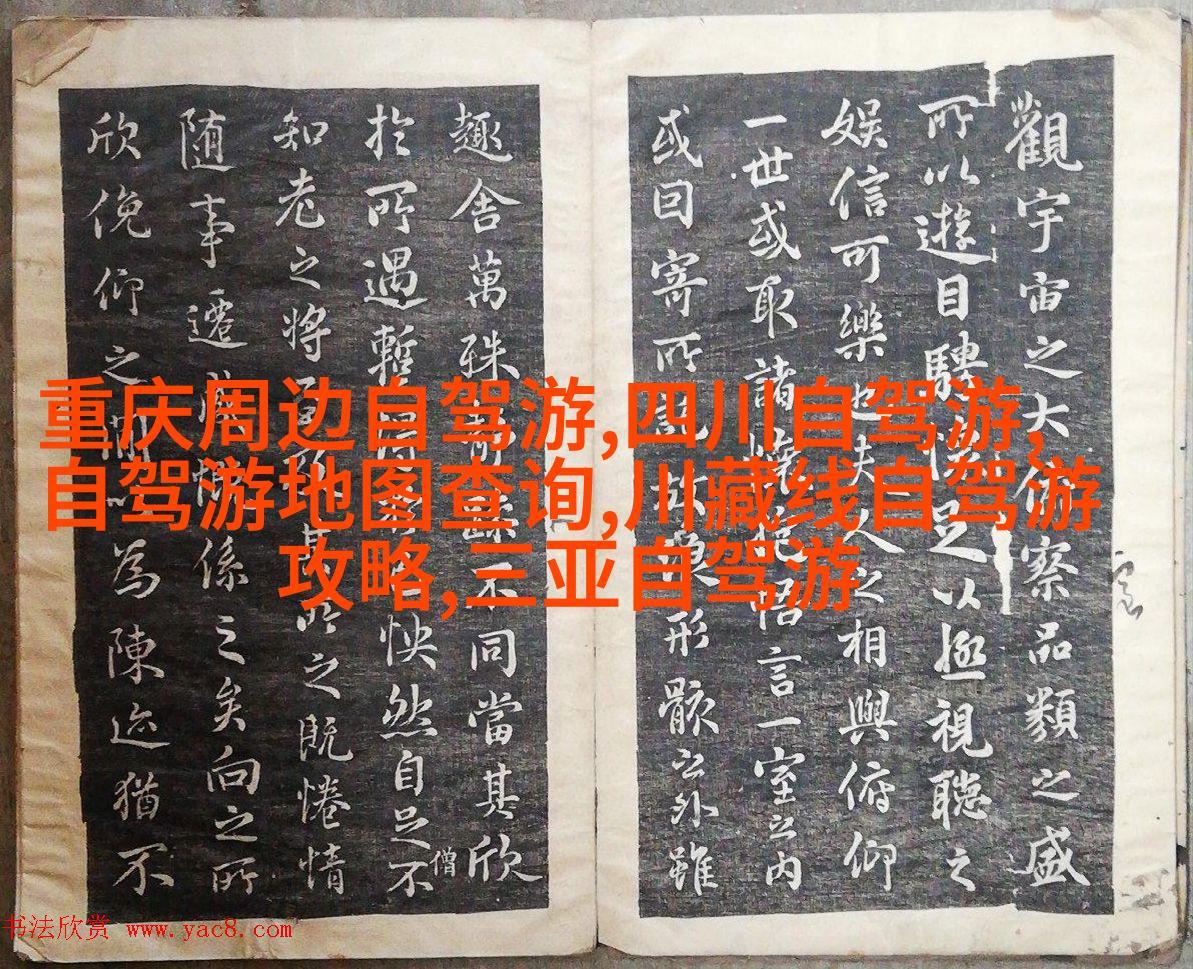 觀宇宙之大俯察品類之盛
所以遊目騁懷足以極視聽之
娛信可樂也夫人之相與俯仰
一世或取諸懷抱悟言一室之内
或因寄所託放浪形骸之外雖
趣舍萬殊不同當其欣
於所遇暫得怏然自足不
僧
知老之將至其所之既惓情
随事遷感慨係之矣向之所
欣俛仰之閒以為陳迹猶不
重庆周边自驾游,四川自驾游,
自驾游地图查询,川藏线自驾游
攻略,三亚自驾游
书法欣赏 www.yac8.com